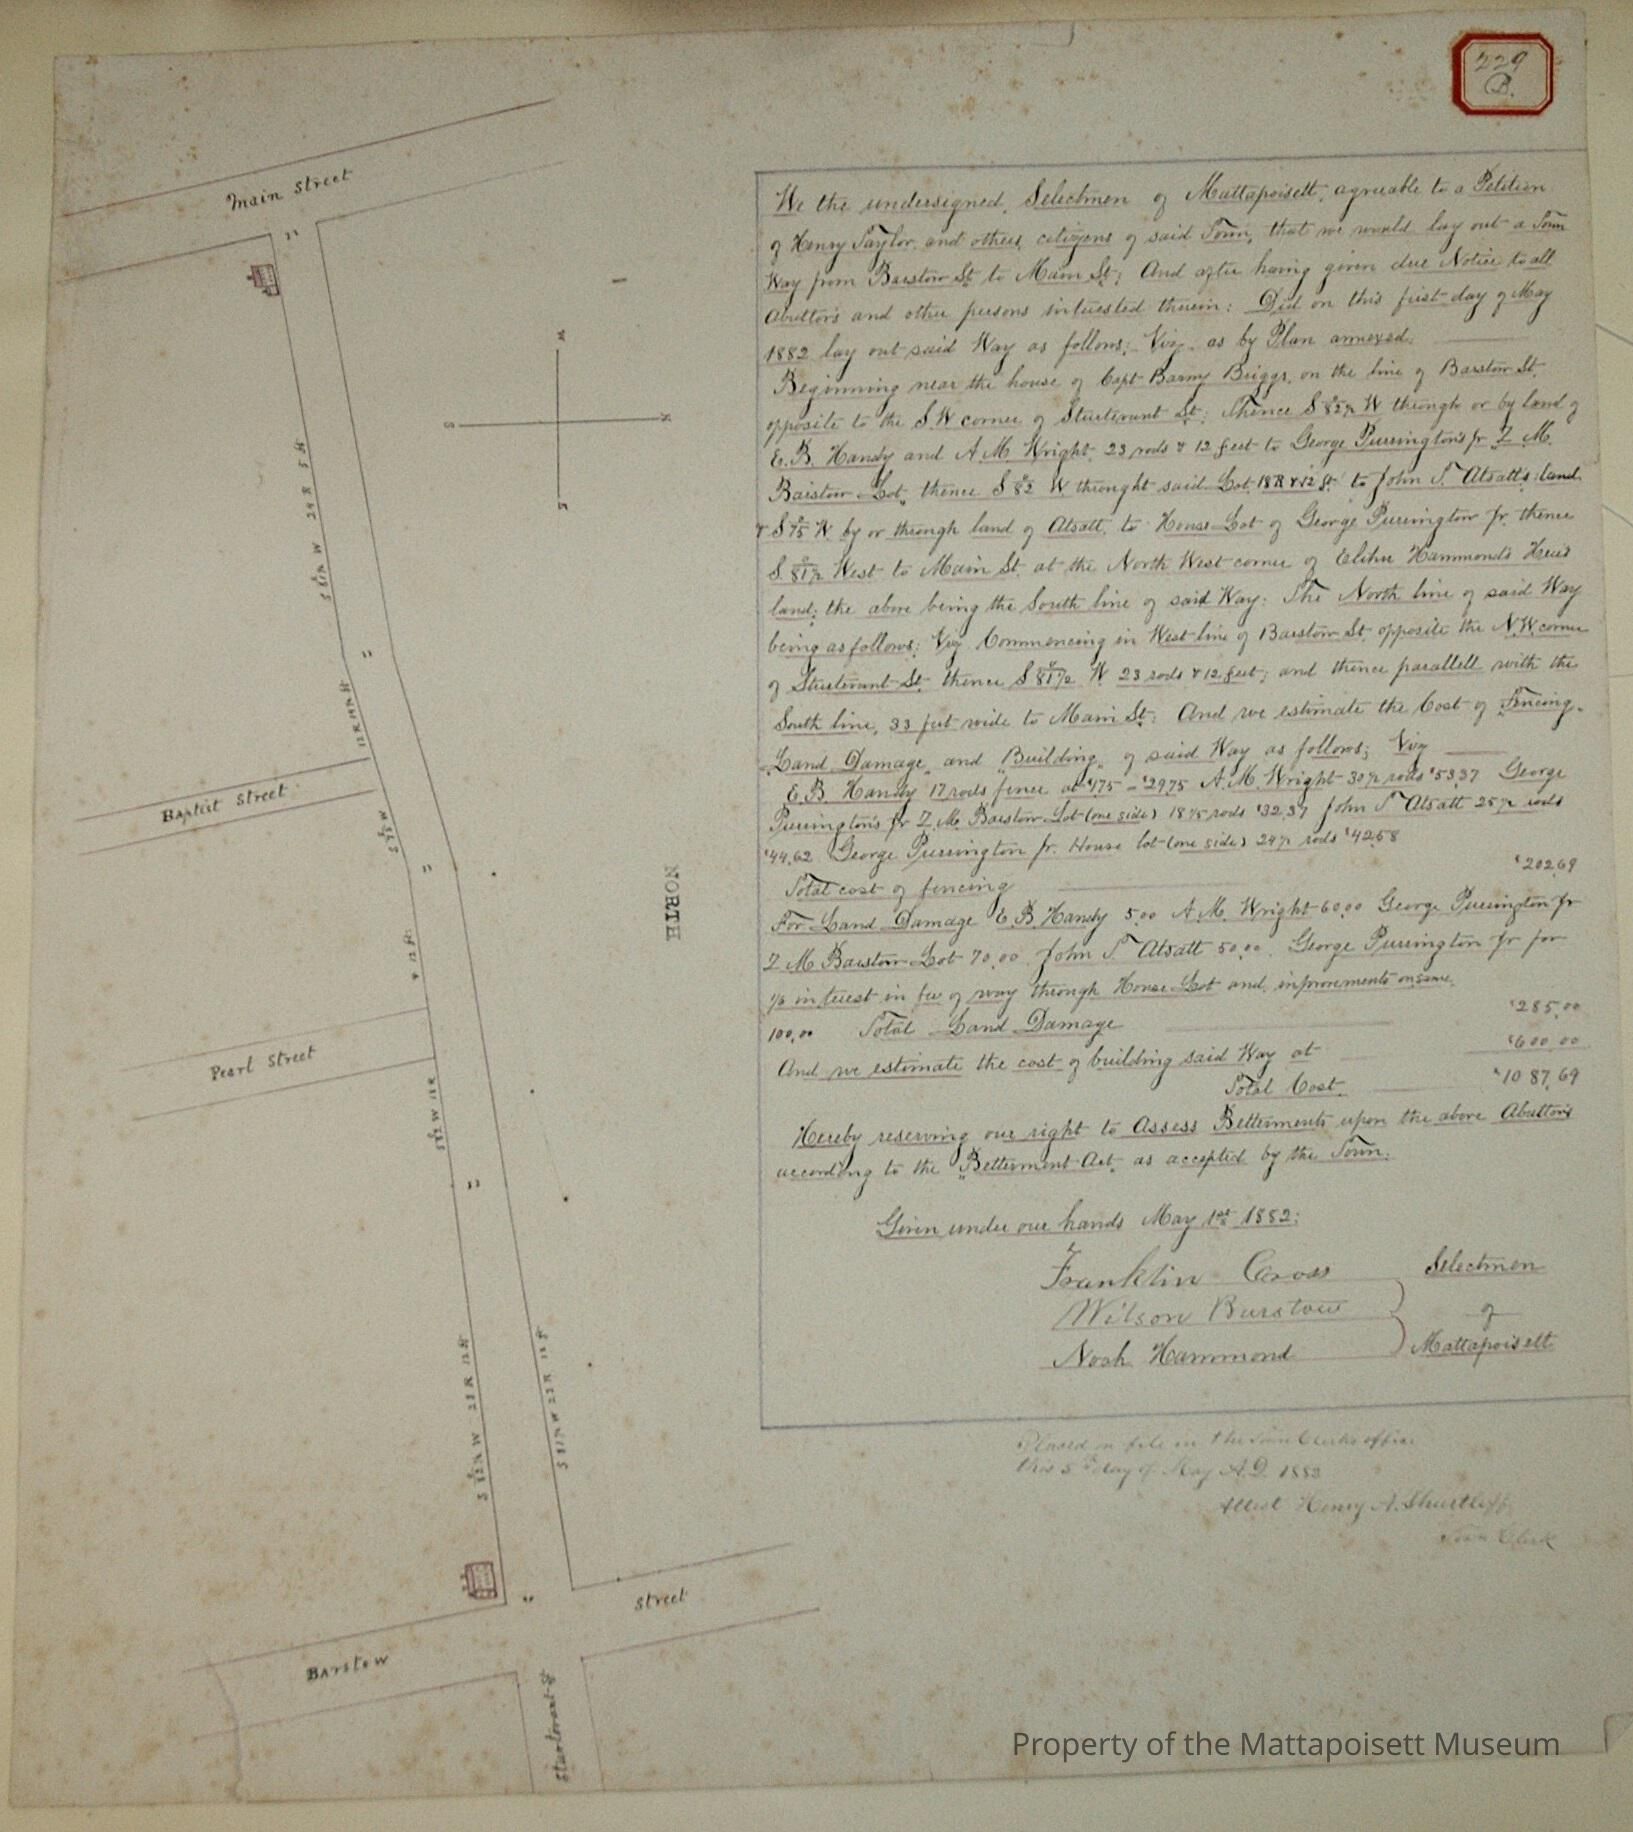 229
B.
Main Street
We the undersigned, Selectmen of Mattapoisett, agreeable to a Petition
of Henry Taylor and others, citizens of said Town, that we would lay out a Town
Way from Barstow St. to Main St; And after having given due Notice to all
Abuttors and other persons interested therein: Did on this first day of May
1882 lay out said Way as follows; Viz. as by Plan annexed.
Beginning near the house of Capt Barny Briggs, on the line of Barstow St.
opposite to the S.W corner of Sturtevant St: Thence S 82½ W through or by land of
E.B. Handy and A.M. Wright 23 rods & 12 feet to George Purrington's jr Z. M.
Barstow Lot, thence S 82 W throught said Lot 18 R & 12 ft. to John T. Atsatt's land
& S 75 W by or through land of Atsatt, to House Lot of George Purrington Jr. thence
S. 81½ West to Main St. at the North West corner of Elihu Hammond's Heirs
land; the above being the South line of said Way: The North line of said Way
being as follows; Viz Commencing in West line of Barstow St. opposite the N.W. corner
of Sturtevant St. thence S 81½ W 23 rods & 12 feet; and thence parallell with the
South line, 33 feet wide to Main St: And we estimate the Cost of Fencing,
Land Damage, and "Building" of said Way as follows; Viz
E.B. Handy 17 rods fence at $175 = $29,75 A.M. Wright 30½ rods $53,37 George
Purrington's Jr Z. M. Barstow Lot (one side) 18½ rods $32,37 John T Atsatt 25½ rods
$44,62 George Purrington Jr. House lot (one side) 24⅓ rods $42,58
Total cost of fencing $202,69
For Land Damage E B Handy 5.00 A.M. Wright 60.00 George Purrington Jr
Z M Barstow Lot 70.00 John T Atsatt 50.00 George Purrington Jr for
interest in fee of way through House Lot and improvements on same.
100.00 Total Land Damage $285,00
And we estimate the cost of building said Way at $600 00
Total Cost. $1087,69
Hereby reserving our right to Assess Betterments upon the above Abuttors
according to the "Betterment Act" as accepted by the Town.
Given under our hands May 1st 1882:
Franklin Cross
Wilson Barstow
Noah Hammond
Selectmen
of
Mattapoisett
Placed on file in the Town Clerks office
this 5th day of May A.D. 1882
Attest Henry A. Shurtleff
Town Clerk
NORTH
W
S
N
E
S 81½ W 24 R 5 ft
Baptist Street
S 75 W
Pearl Street
S 82 W 18 R
12 ft
S 82½ W 23 R 12 ft
S 81½ W 23 R 12 F
Barstow
Street
Sturtevant St
Property of the Mattapoisett Museum